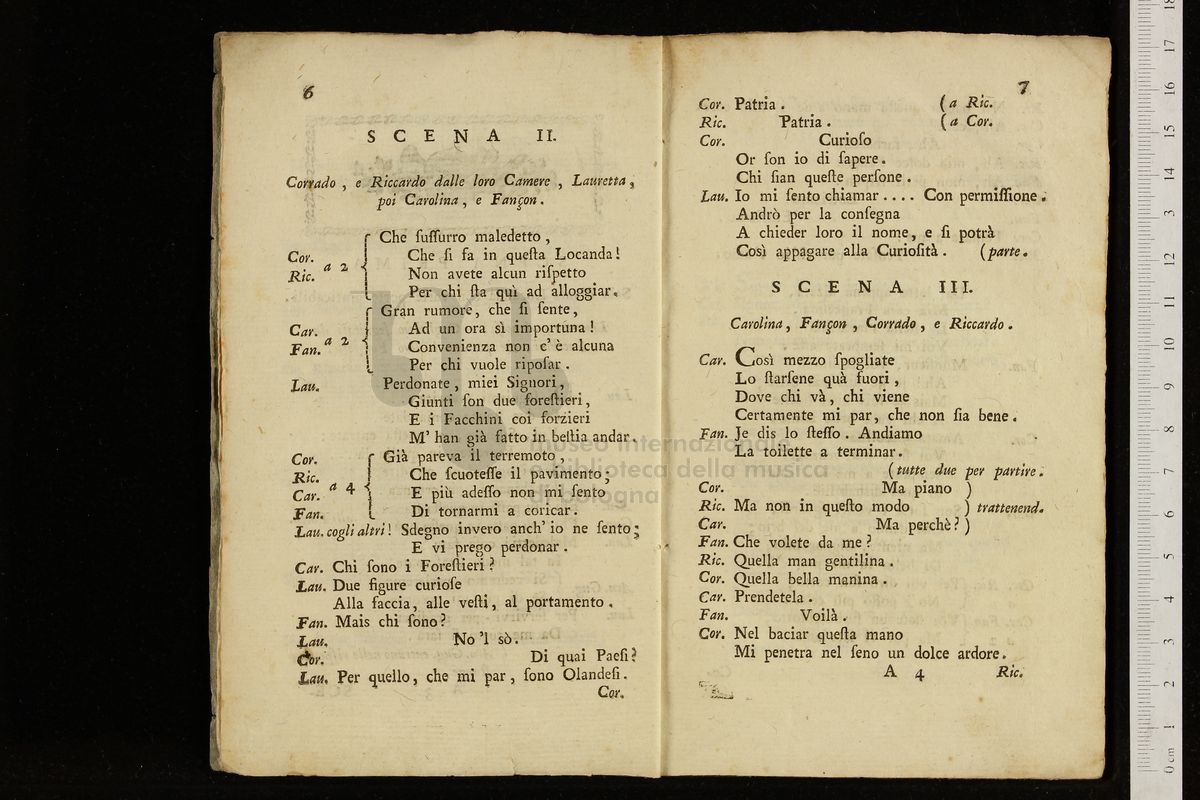 6
SCENA II.
Corrado, e Riccardo dalle loro Camere, Lauretta,
poi Carolina, e Fançon.
Che ſuſſurro maledetto,
Cor. Che ſi fa in queſta Locanda!
Ric. a 2 Non avete alcun riſpetto
Per chi ſta quì ad alloggiar.
Gran rumore, che ſi ſente,
Car. Ad un ora sì importuna!
Fan. a 2 Convenienza non c'è alcuna
Per chi vuole ripoſar.
Lau. Perdonate, miei Signori,
Giunti ſon due foreſtieri,
E i Facchini coi forzieri
M' han già fatto in beſtia andar.
Cor. Già pareva il terremoto,
Ric. Che ſcuoteſſe il pavimento;
Car. a 4 E più adeſſo non mi ſento
Fan. Di tornarmi a coricar.
Lau. cogli altri! Sdegno invero anch' io ne ſento;
E vi prego perdonar.
Car. Chi ſono i Foreſtieri?
Lau. Due figure curioſe
Alla faccia, alle veſti, al portamento.
Fan. Mais chi ſono?
Lau. No 'l sò.
Cor. Di quai Paeſi?
Lau. Per quello, che mi par, ſono Olandeſi.
Cor.
7
Cor. Patria. (a Ric.
Ric. Patria. (a Cor.
Cor. Curioſo
Or ſon io di ſapere.
Chi ſian queſte perſone.
Lau. Io mi ſento chiamar.... Con permiſſione.
Andrò per la conſegna
A chieder loro il nome, e ſi potrà
Così appagare alla Curioſità. (parte.
SCENA III.
Carolina, Fançon, Corrado, e Riccardo.
Car. Così mezzo ſpogliate
Lo ſtarſene quà fuori,
Dove chi và, chi viene
Certamente mi par, che non ſia bene.
Fan. Je dis lo ſteſſo. Andiamo
La toilette a terminar.
(tutte due per partire.
Cor. Ma piano )
Ric. Ma non in queſto modo ) trattenend.
Car. Ma perchè? )
Fan. Che volete da me?
Ric. Quella man gentilina.
Cor. Quella bella manina.
Car. Prendetela.
Fan. Voilà.
Cor. Nel baciar queſta mano
Mi penetra nel ſeno un dolce ardore.
A 4 Ric.
museo internazionale
e biblioteca della musica
di bologna
0 cm 1 2 3 4 5 6 7 8 9 10 11 12 13 14 15 16 17 18